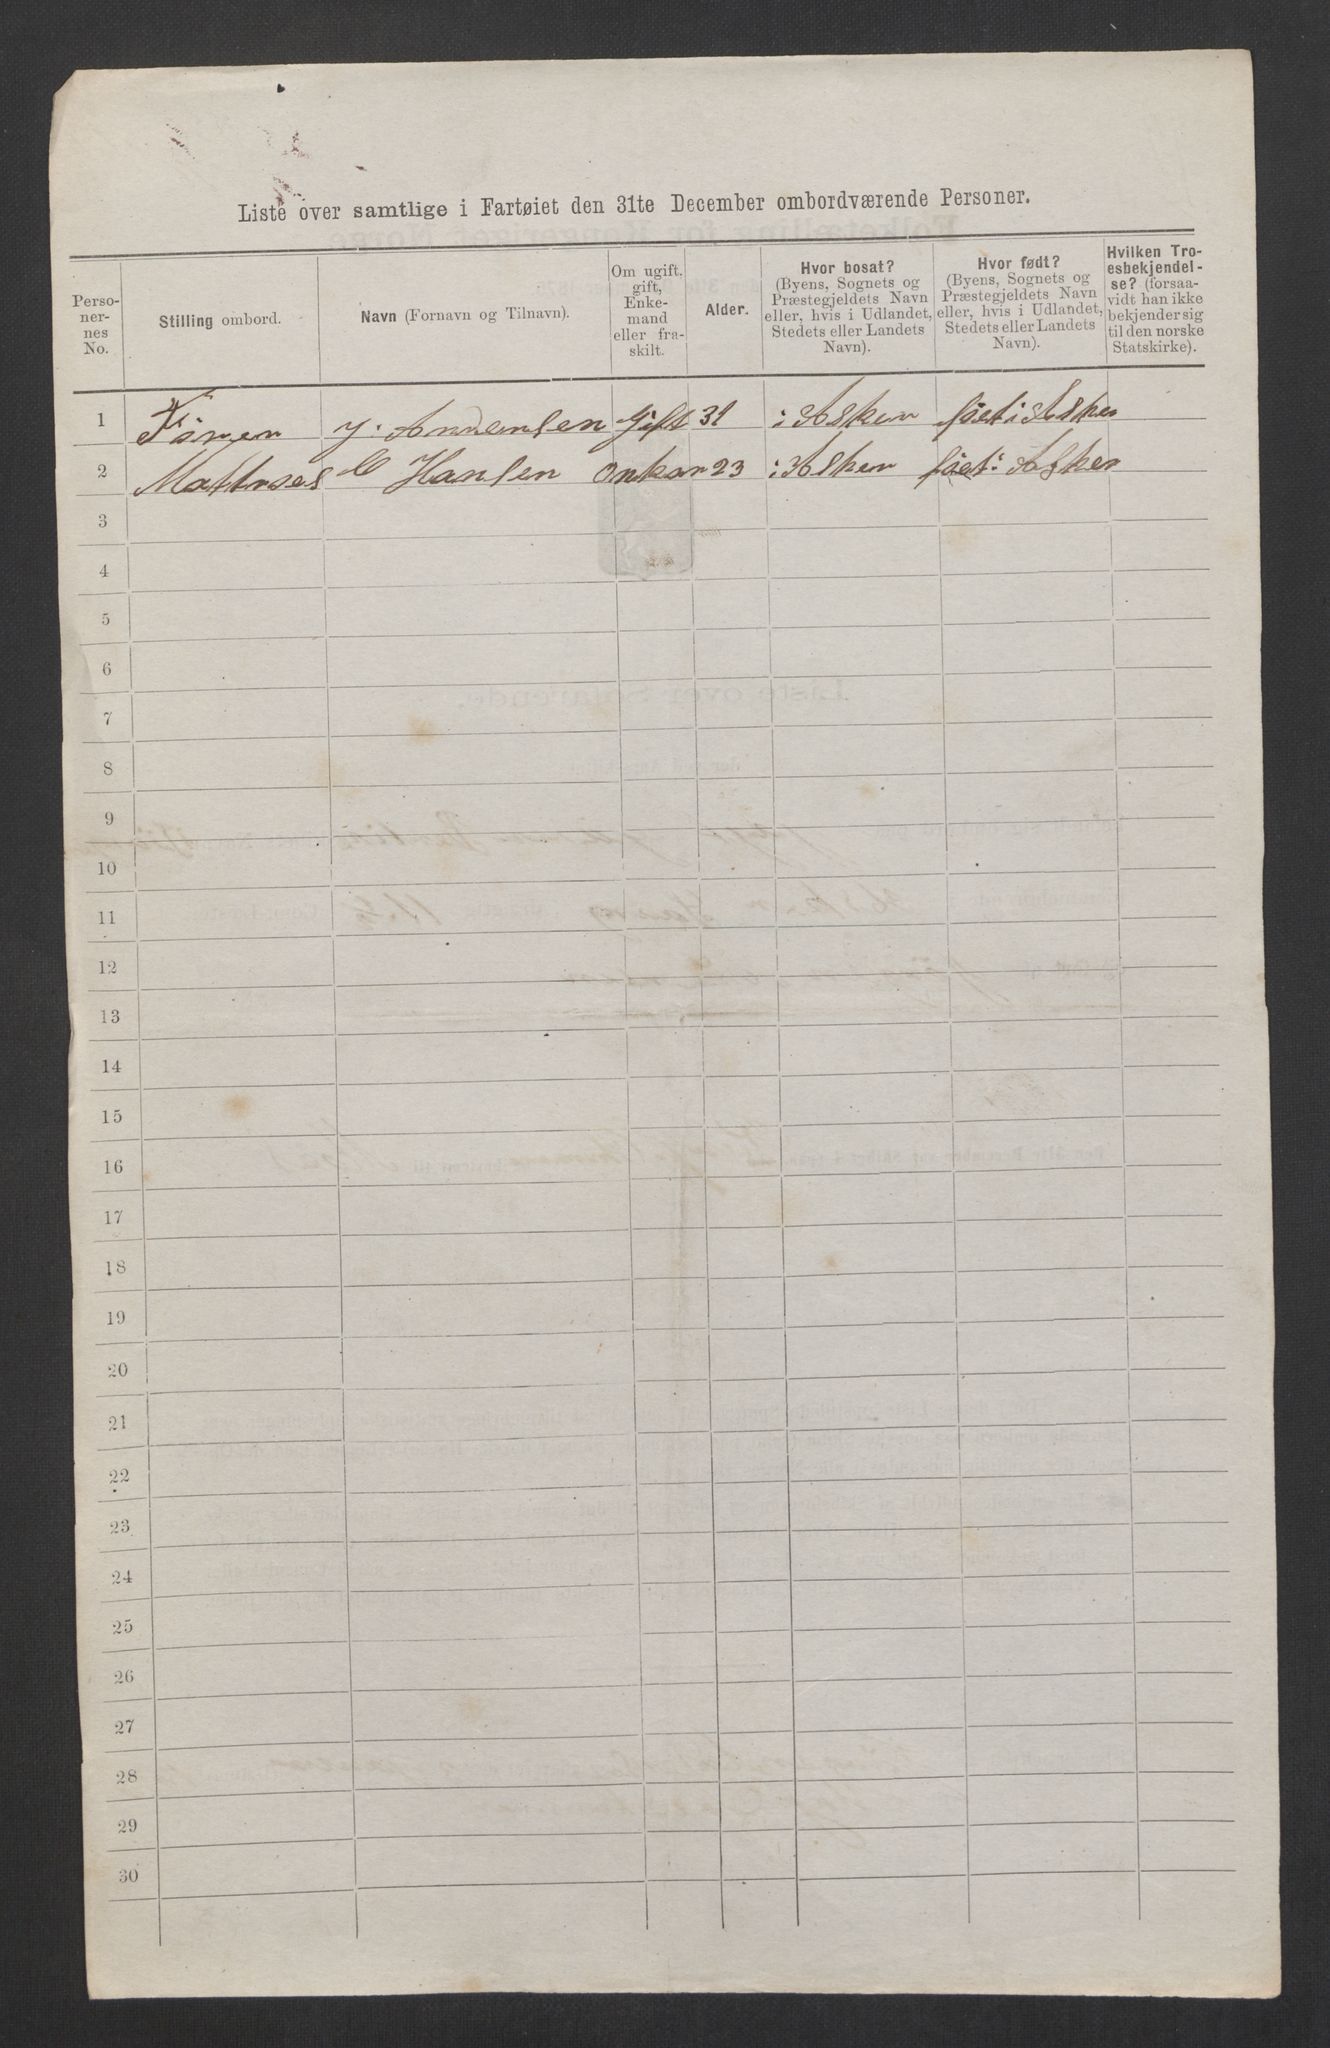 Liste over samtlige i Fartøiet den 31te December ombordværende Personer.
Perso-
ner-
nes
No.
Stilling ombord.
Navn (Fornavn og Tilnavn).
Om ugift,
gift,
Enke-
mand
eller fra-
skilt.
Alder.
Hvor bosat?
(Byens, Sognets og
Præstegjeldets Navn
eller, hvis i Udlandet,
Stedets eller Landets
Navn).
Hvor født?
(Byens, Sognets og
Præstegjeldets Navn
eller, hvis i Udlandet,
Stedets eller Landets
Navn).
Hvilken Tro-
esbekjendel-
se? (forsaa-
vidt han ikke
bekjender sig
til den norske
Statskirke).
1 J. Andersen Gift 31 i Asker föet i Asker
2 Matroses C Hansen Onkar 23 i Asker föet i Asker
3
4
5
6
7
8
9
10
11
12
13
14
15
16
17
18
19
20
21
22
23
24
25
26
27
28
29
30